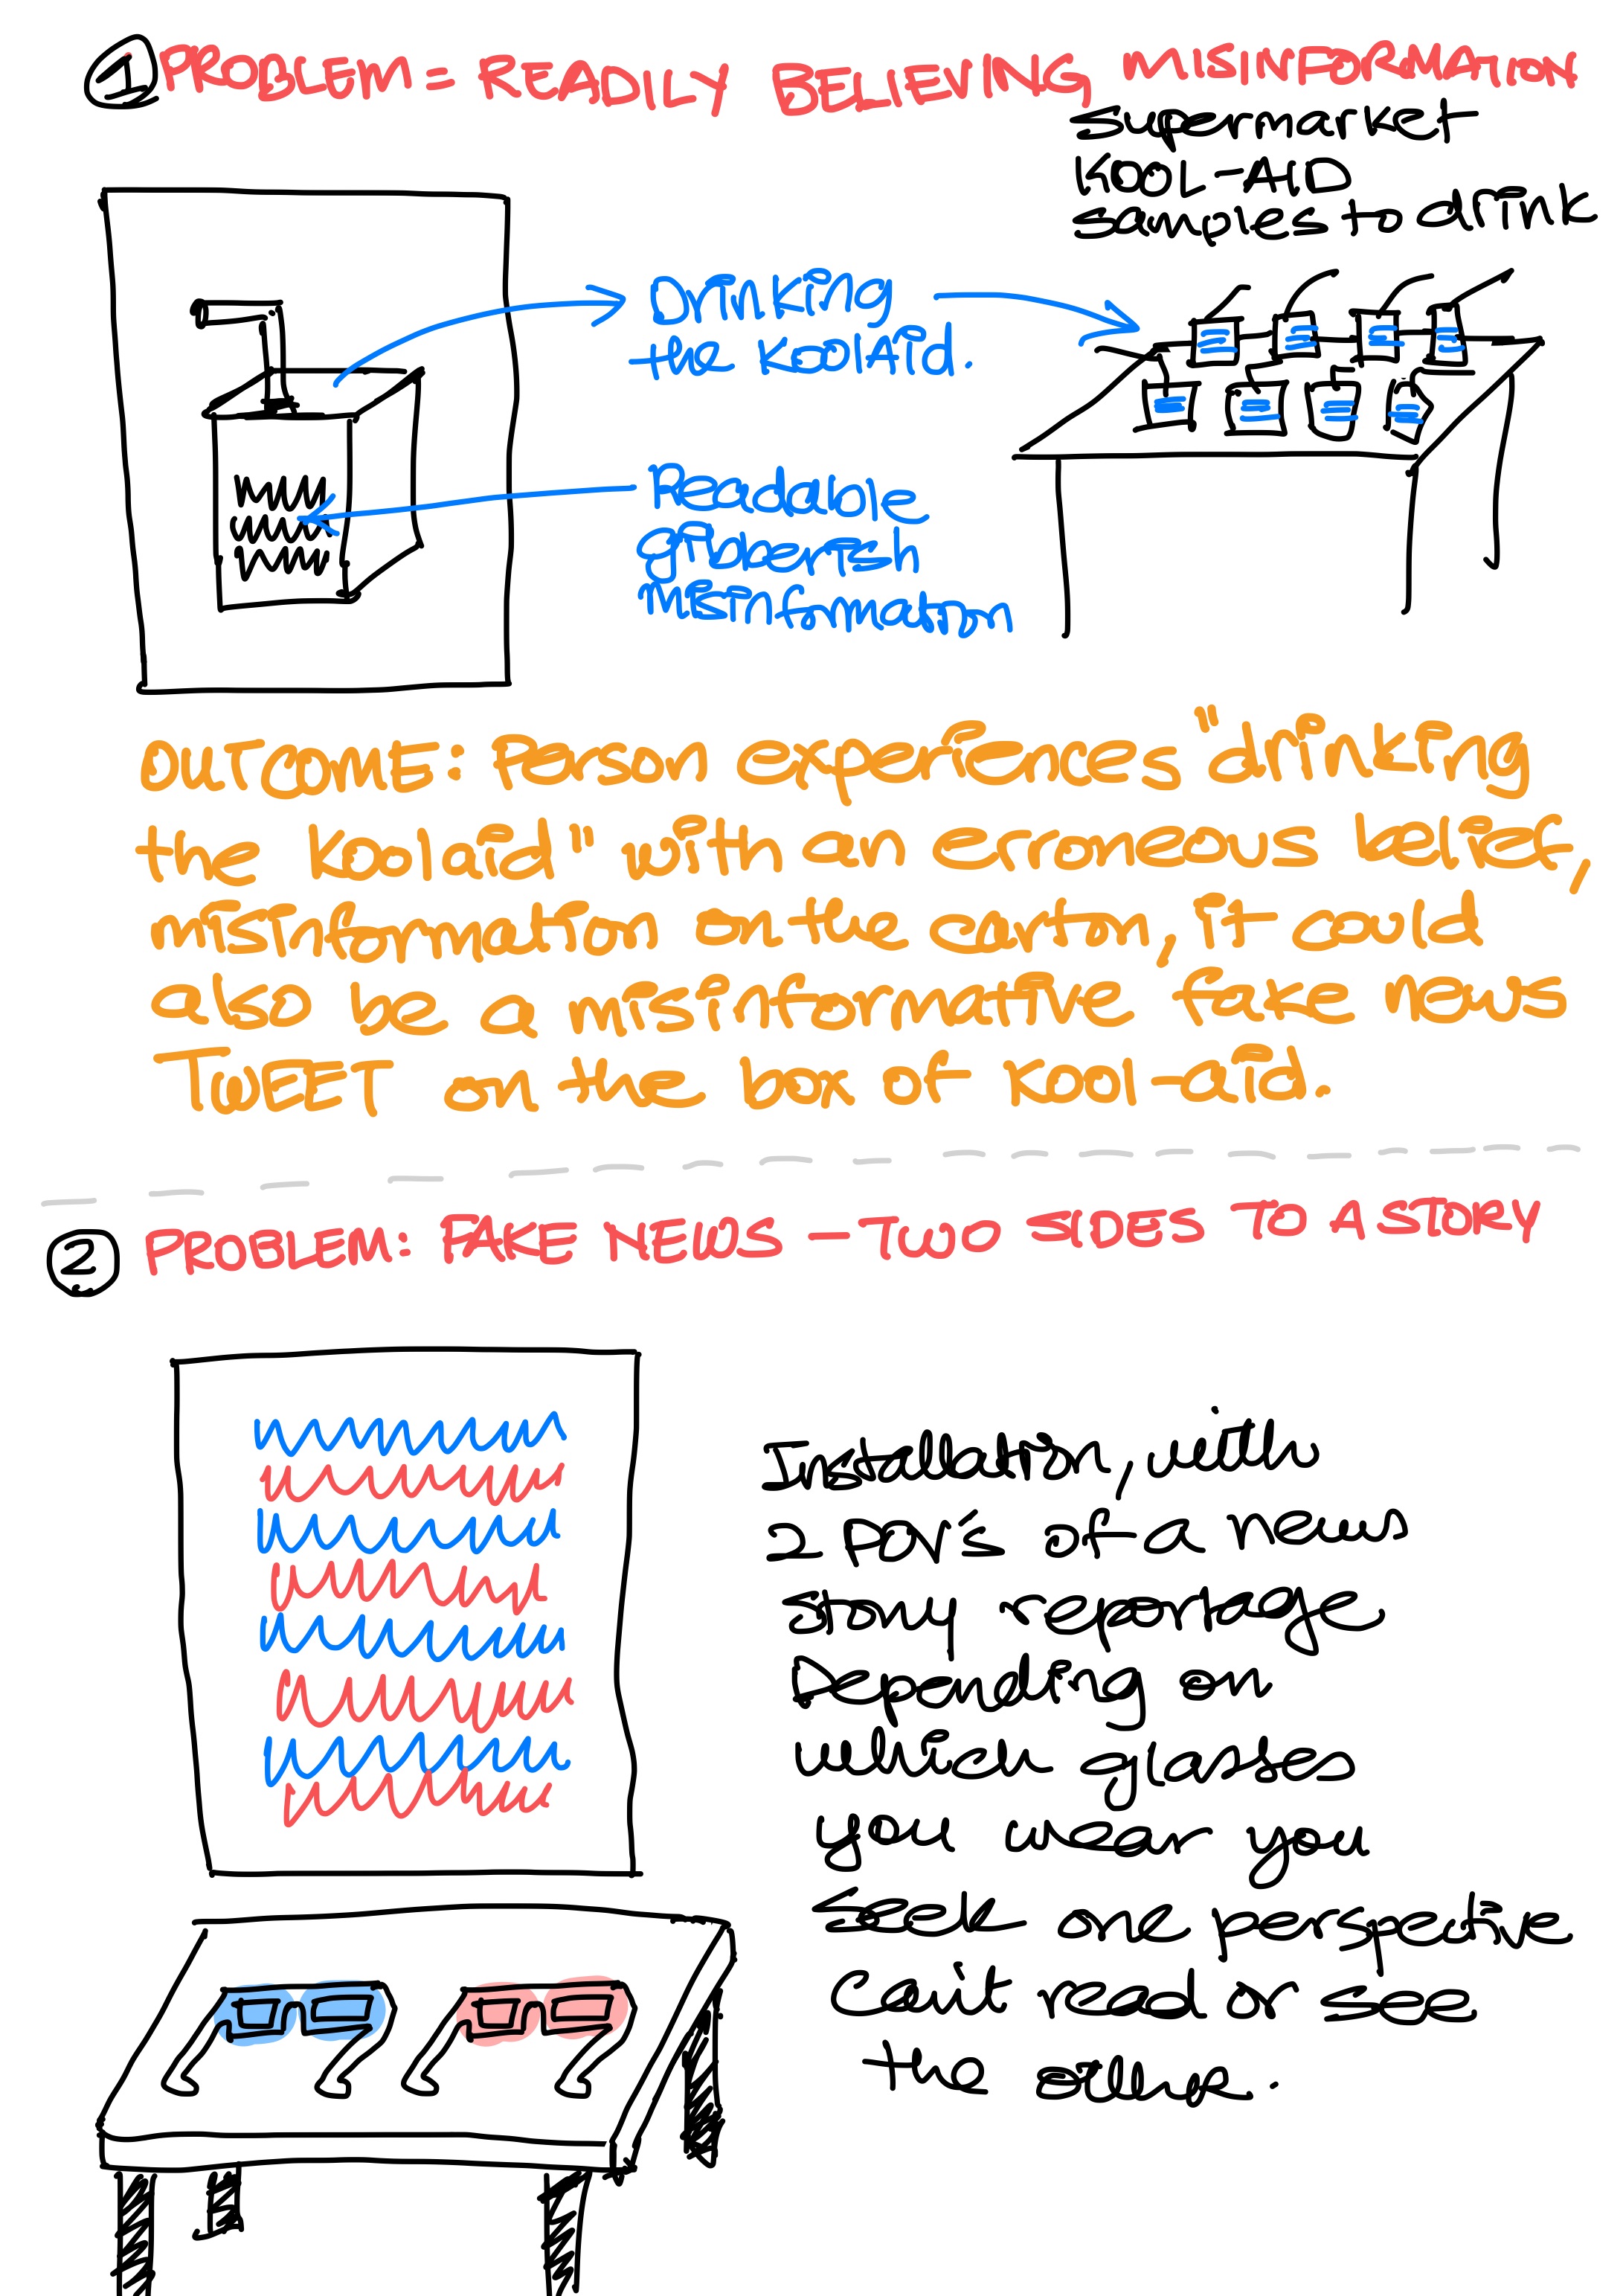 1 PROBLEM = READILY BELIEVING MISINFORMATION
supermarket
KOOL-AID
samples to drink
Drinking
the KoolAid.
Readable
gibberish
misinformation
OUTCOME: Person experiences "drinking
the Koolaid" with an erroneous belief,
misinformation on the carton, it could
also be a misinformative fake news
TWEET on the box of Kool-aid.
2 PROBLEM: FAKE NEWS - TWO SIDES TO A STORY
Installation, with
2 POV's of a news
story reportage
Depending on
which glasses
you wear you
seek one perspective
Can't read or see
the other.